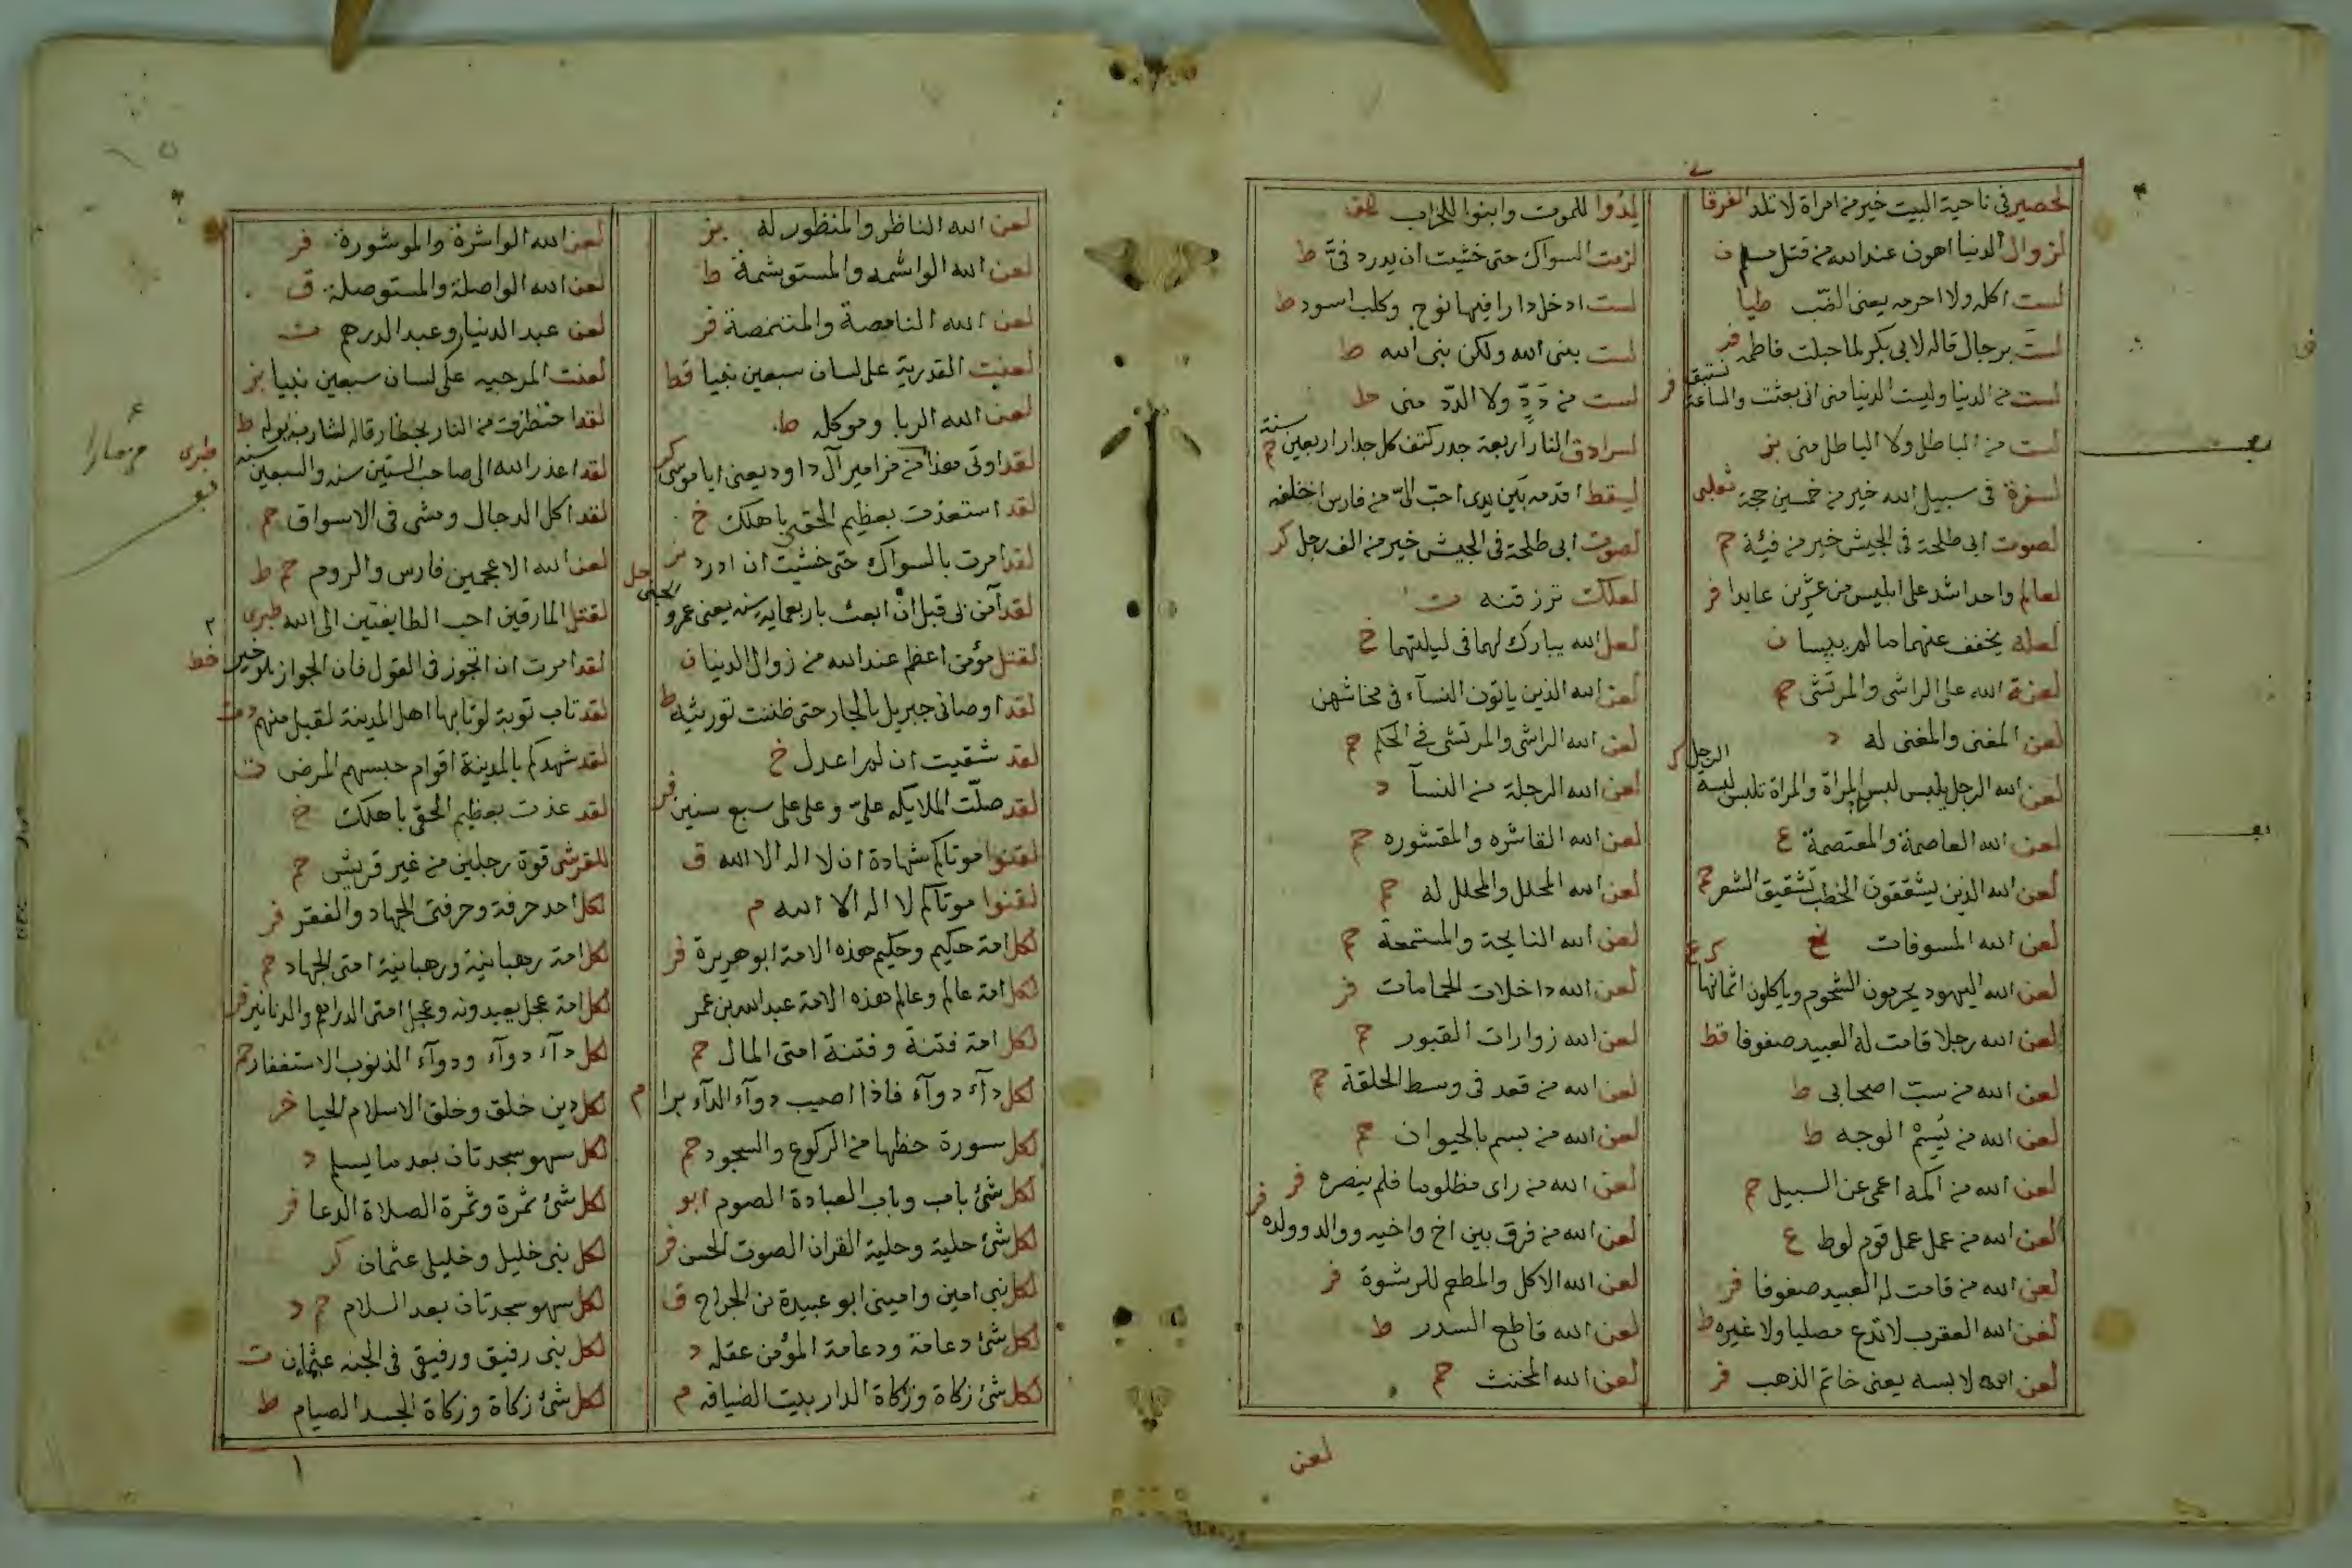 لحصير في ناحية البيت خير من امراة لا تلد
لزوال الدنيا اهون عند الله من قتل مسلم ن
لست اكله ولا احرمه يعنى الضب طيا
لست برجال قاله لابى بكر لما خطب فاطمة
لست من الدنيا وليست الدنيا منى انى بعثت والساعة نستبق
لست من الباطل ولا الباطل منى
لسفرة فى سبيل الله خير من خمسين حجة
لصوت ابى طلحة فى الجيش خير من فئة حم
لعالم واحد اشد على ابليس من عشرين عابدا فر
لعله يخفف عنهما ما لم ييبسا ن
لعنة الله على الراشى والمرتشى حم
لعن المغنى والمغنى له
لعن الله الرجل يلبس لبس المراة والمراة تلبس لبسة الرجل
لعن الله العاصمة والمعتصمة ع
لعن الله الذين يشققون الخطب تشقيق الشعر حم
لعن الله المسوفات
لعن الله اليهود يحرمون الشحوم وياكلون اثمانها
لعن الله رجلا قامت له العبيد صفوفا قط
لعن الله من سب اصحابى ط
لعن الله من يسم الوجه ط
لعن الله من اكمه اعمى عن السبيل حم
لعن الله من عمل عمل قوم لوط ع
لعن الله من قامت له العبيد صفوفا فر
لعن الله العقرب لا تدع مصليا ولا غيره ط
لعن الله لابسه يعنى خاتم الذهب فر
لدوا للموت وابنوا للخراب
لزمت السواك حتى خشيت ان يدرد فى ط
لست ادخل دارا فيها نوح وكلب اسود ط
لست بنبى الله ولكن نبى الله
لست من دد ولا الدد منى ط
لسرادق النار اربعة جدر كثف كل جدار اربعين سنة حم
لسقط اقدمه بين يدى احب الى من فارس اخلفه
لصوت ابى طلحة فى الجيش خير من الف رجل كر
لعلك ترزق به ت
لعل الله يبارك لهما فى ليلتهما خ
لعن الله الذين ياتون النساء فى محاشهن
لعن الله الراشى والمرتشى فى الحكم حم
لعن الله الرجلة من النسآ د
لعن الله القاشره والمقشوره حم
لعن الله المحلل والمحلل له حم
لعن الله النايحة والمستمعة حم
لعن الله داخلات الحمامات فر
لعن الله زوارات القبور حم
لعن الله من قعد فى وسط الحلقة حم
لعن الله من يسم بالحيوان حم
لعن الله من راى مظلوما فلم ينصره فر
لعن الله من فرق بين اخ واخيه ووالد وولده فر
لعن الله الاكل والمطعم للرشوة فر
لعن الله قاطع السدر ط
لعن الله المخنث حم
لعن
لعن الله الناظر والمنظور له
لعن الله الواشمه والمستوشمة ط
لعن الله النامصة والمتنمصة فر
لعنت القدرية على لسان سبعين نبيا قط
لعن الله الربا وموكله ط
لقد اوتى هذا من مزامير آل داود يعنى ابا موسى
لقد استعذت بعظيم الحقى باهلك خ
لقد امرت بالسواك حتى خشيت ان ادرد
لقد آمن بى قبل ان ابعث باربعمايه سنه يعنى عمرو
لقتل مؤمن اعظم عند الله من زوال الدنيا ن
لقد اوصانى جبريل بالجار حتى ظننت توريثه ط
لقد شقيت ان لم اعدل خ
لقد صلت الملايكه على وعلى على سبع سنين فر
لقنوا موتاكم شهادة ان لا اله الا الله ق
لقنوا موتاكم لا اله الا الله م
لكل امة حكيم وحكيم هذه الامة ابو هريرة فر
لكل امة عالم وعالم هذه الامة عبد الله بن عمر
لكل امة فتنة وفتنة امتى المال حم
لكل دآء دوآء فاذا اصيب دوآء الدآء برا م
لكل سورة حظها من الركوع والسجود حم
لكل شئ باب وباب العبادة الصوم ابو
لكل شئ حلية وحلية القران الصوت الحسن فر
لكل نبى امين وامينى ابو عبيدة بن الجراح ق
لكل شئ دعامة ودعامة المؤمن عقله د
لكل شئ زكاة وزكاة الدار بيت الضيافه م
لعن الله الواشرة والموشورة فر
لعن الله الواصلة والمستوصلة ق
لعن عبد الدنيار وعبد الدرهم ت
لعنت المرجيه على لسان سبعين نبيا
لقد احتظرت من النار بحظار قاله لشارب بوله ط
لقد اعذر الله الى صاحب الستين سنه والسبعين سنه طبرى
لقد اكل الدجال ومشى فى الاسواق حم
لعن الله الاعجمين فارس والروم حم ط
لقتل المارقين احب الطايفتين الى الله طبرى
لقد امرت ان اتجوز فى القول فان الجواز هو خير
لقد تاب توبة لو تابها اهل المدينة لقبل منهم د ت
لقد شهدكم بالمدينة اقوام حبسهم المرض ت
لقد عذت بعظيم الحقى باهلك خ
للقرشى قوة رجلين من غير قريش حم
لكل احد حرفة وحرفتى الجهاد والفقر فر
لكل امة رهبانية ورهبانية امتى الجهاد حم
لكل امة عجل يعبدونه وعجل امتى الدراهم والدنانير فر
لكل دآء دوآء ودوآء الذنوب الاستغفار حم
لكل دين خلق وخلق الاسلام الحيا
لكل سهو سجدتان بعد ما يسلم د
لكل شئ ثمرة وثمرة الصلاة الدعا فر
لكل نبى خليل وخليلى عثمان كر
لكل سهو سجدتان بعد السلام حم د
لكل نبى رفيق ورفيقى فى الجنه عثمان ت
لكل شئ زكاة وزكاة الجسد الصيام ط